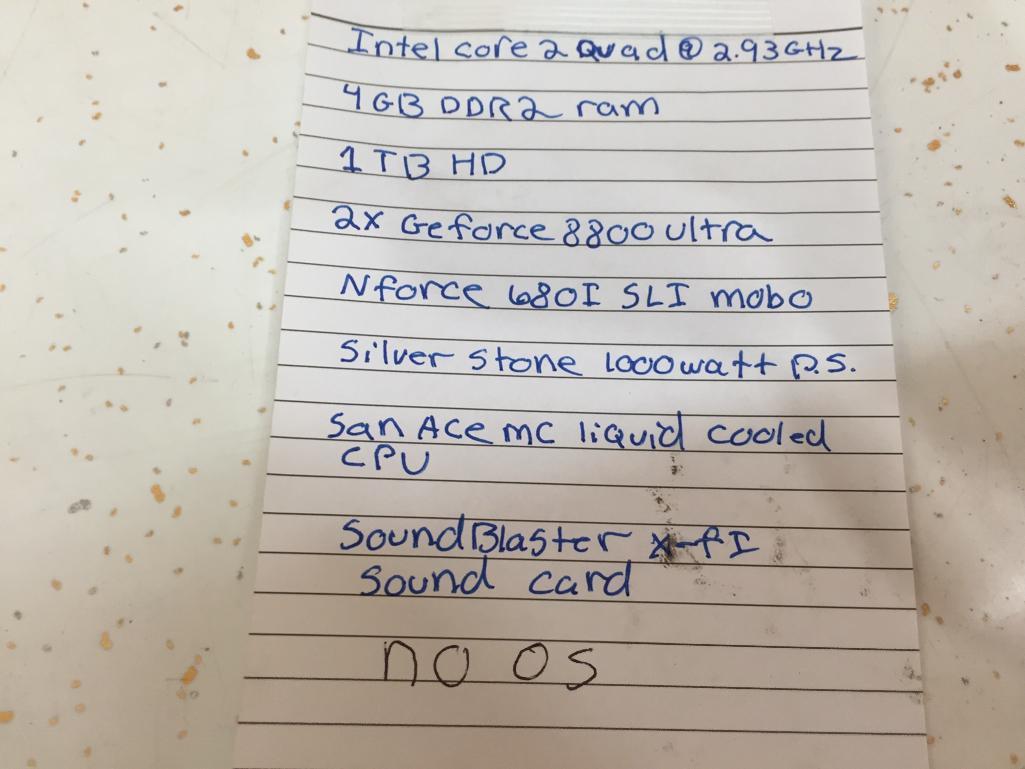 Intel core 2 Quad @ 2.93GHz
4GB DDR2 ram
1TB HD
2x Geforce 8800 ultra
Nforce 680I SLI mobo
Silver Stone 1000watt P.S.
San Ace MC liquid cooled
CPU
SoundBlaster X-fI
Sound card
no OS